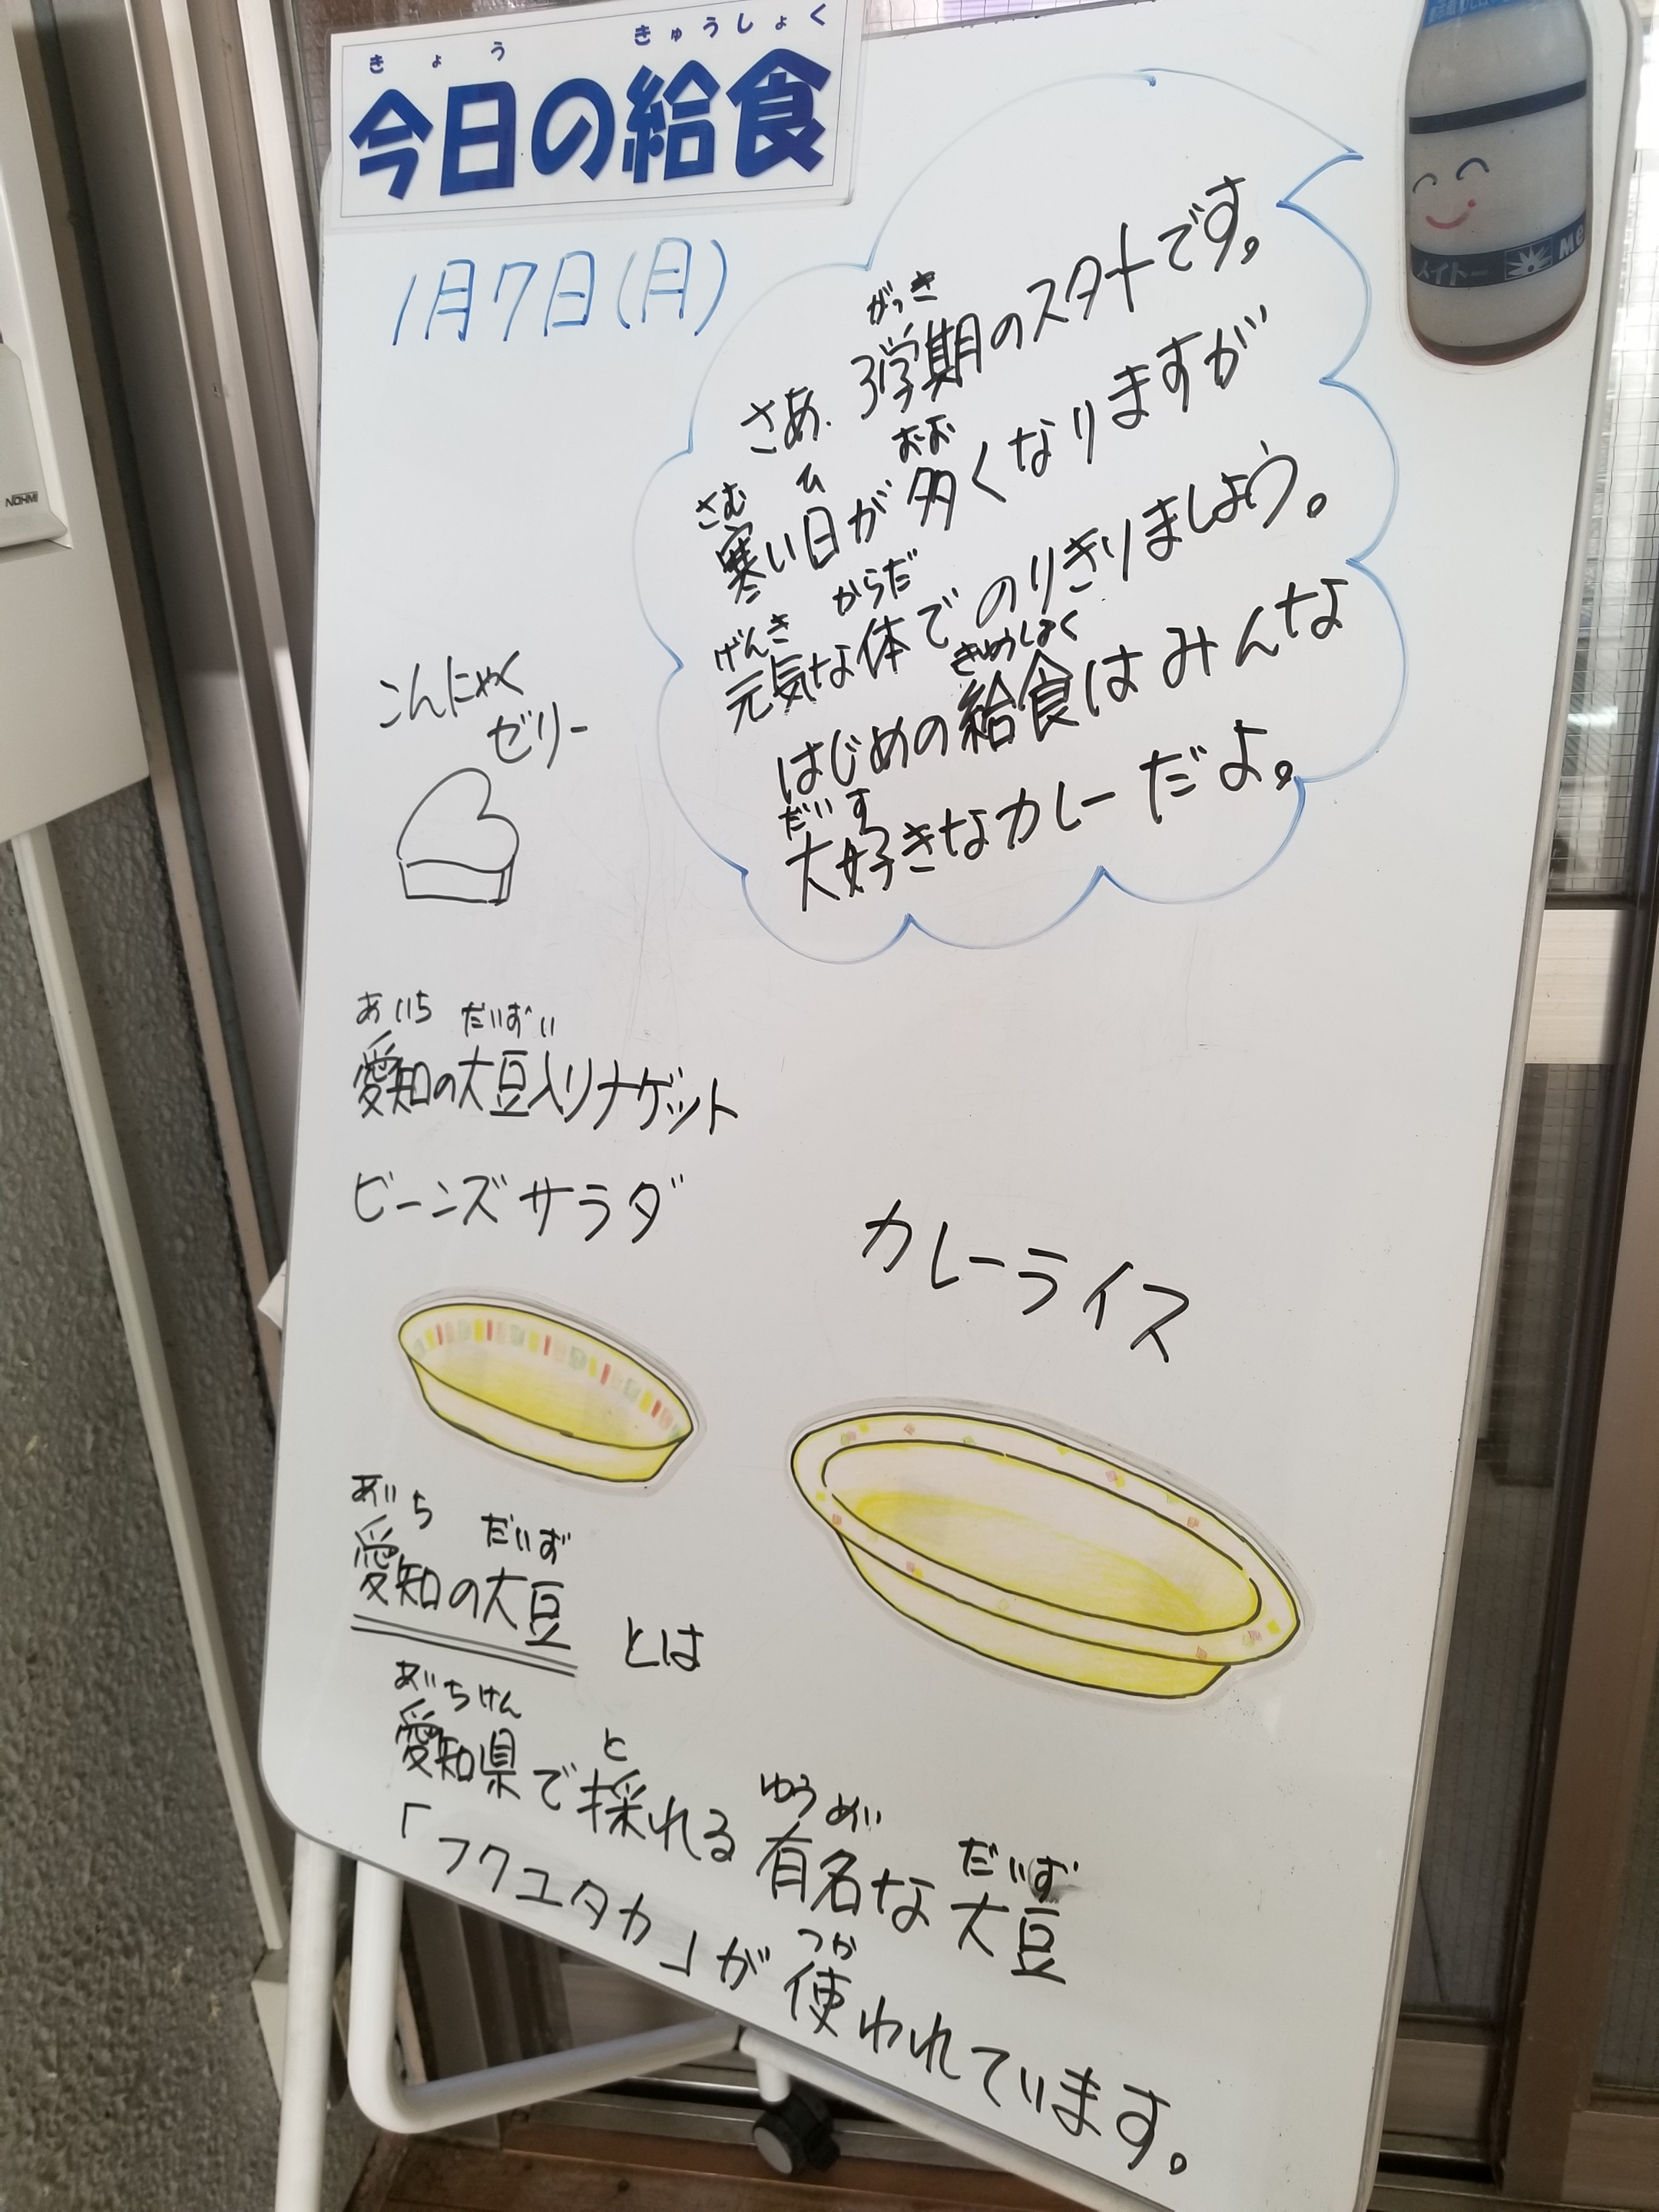 きょう きゅうしょく
今日の給食
メイトー
1月7日(月)
がっき
さあ、3学期のスタートです。
さむ ひ おお
寒い日が多くなりますが
げんき からだ
元気な体でのりきりましょう。
きゅうしょく
はじめの給食はみんな
だいす
大好きなカレーだよ。
NOHMI
こんにゃく
ゼリー
あいち だいずい
愛知の大豆入りナゲット
ビーンズサラダ
カレーライス
あいち だいず
愛知の大豆とは
あいちけん と ゆうめい だいず
愛知県で採れる有名な大豆
つか
「フクユタカ」が使われています。